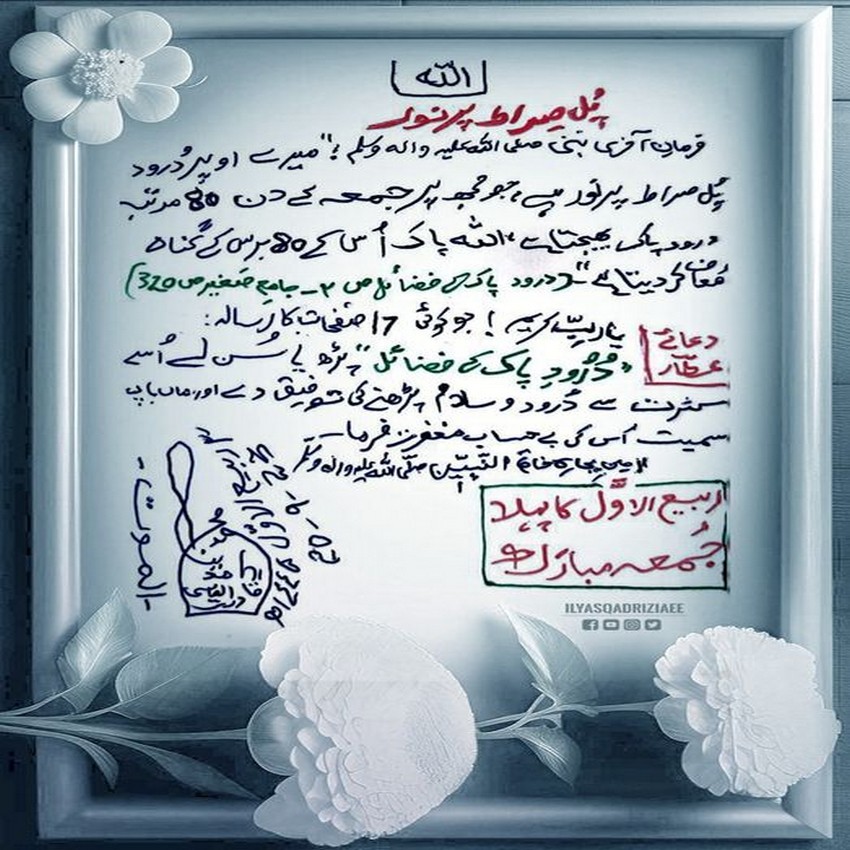 اللہ
پُل صراط پر نور
فرمانِ آخری نبی صلی اللہ علیہ واٰلہٖ وسلم : "میرے اوپر دُرود
پُل صراط پر نور ہے، جو مجھ پر جمعہ کے دن 80 مرتبہ
درود پاک بھیجتا ہے، اللہ پاک اُس کے 80 برس کے گناہ
مُعاف کر دیتا ہے" (درود پاک کے فضائل ص ۳ - جامع صغیر ص 320)
دعائے عطّار
یا ربِّ کریم! جو کوئی 17 صفحات کا رسالہ:
"دُرُودِ پاک کے فضائل" پڑھ یا سُن لے اُسے
کثرت سے دُرود و سلام پڑھنے کی توفیق دے اور ماں باپ
سمیت اُس کی بے حساب مغفرت فرما۔
اٰمین بجاہِ خاتمِ النَّبِیّین صلّی اللہ علیہ واٰلہٖ وسلّم
ربیع الاوّل کا پہلا
جُمعہ مبارک ہو
الموت
ILYASQADRIZIAEE